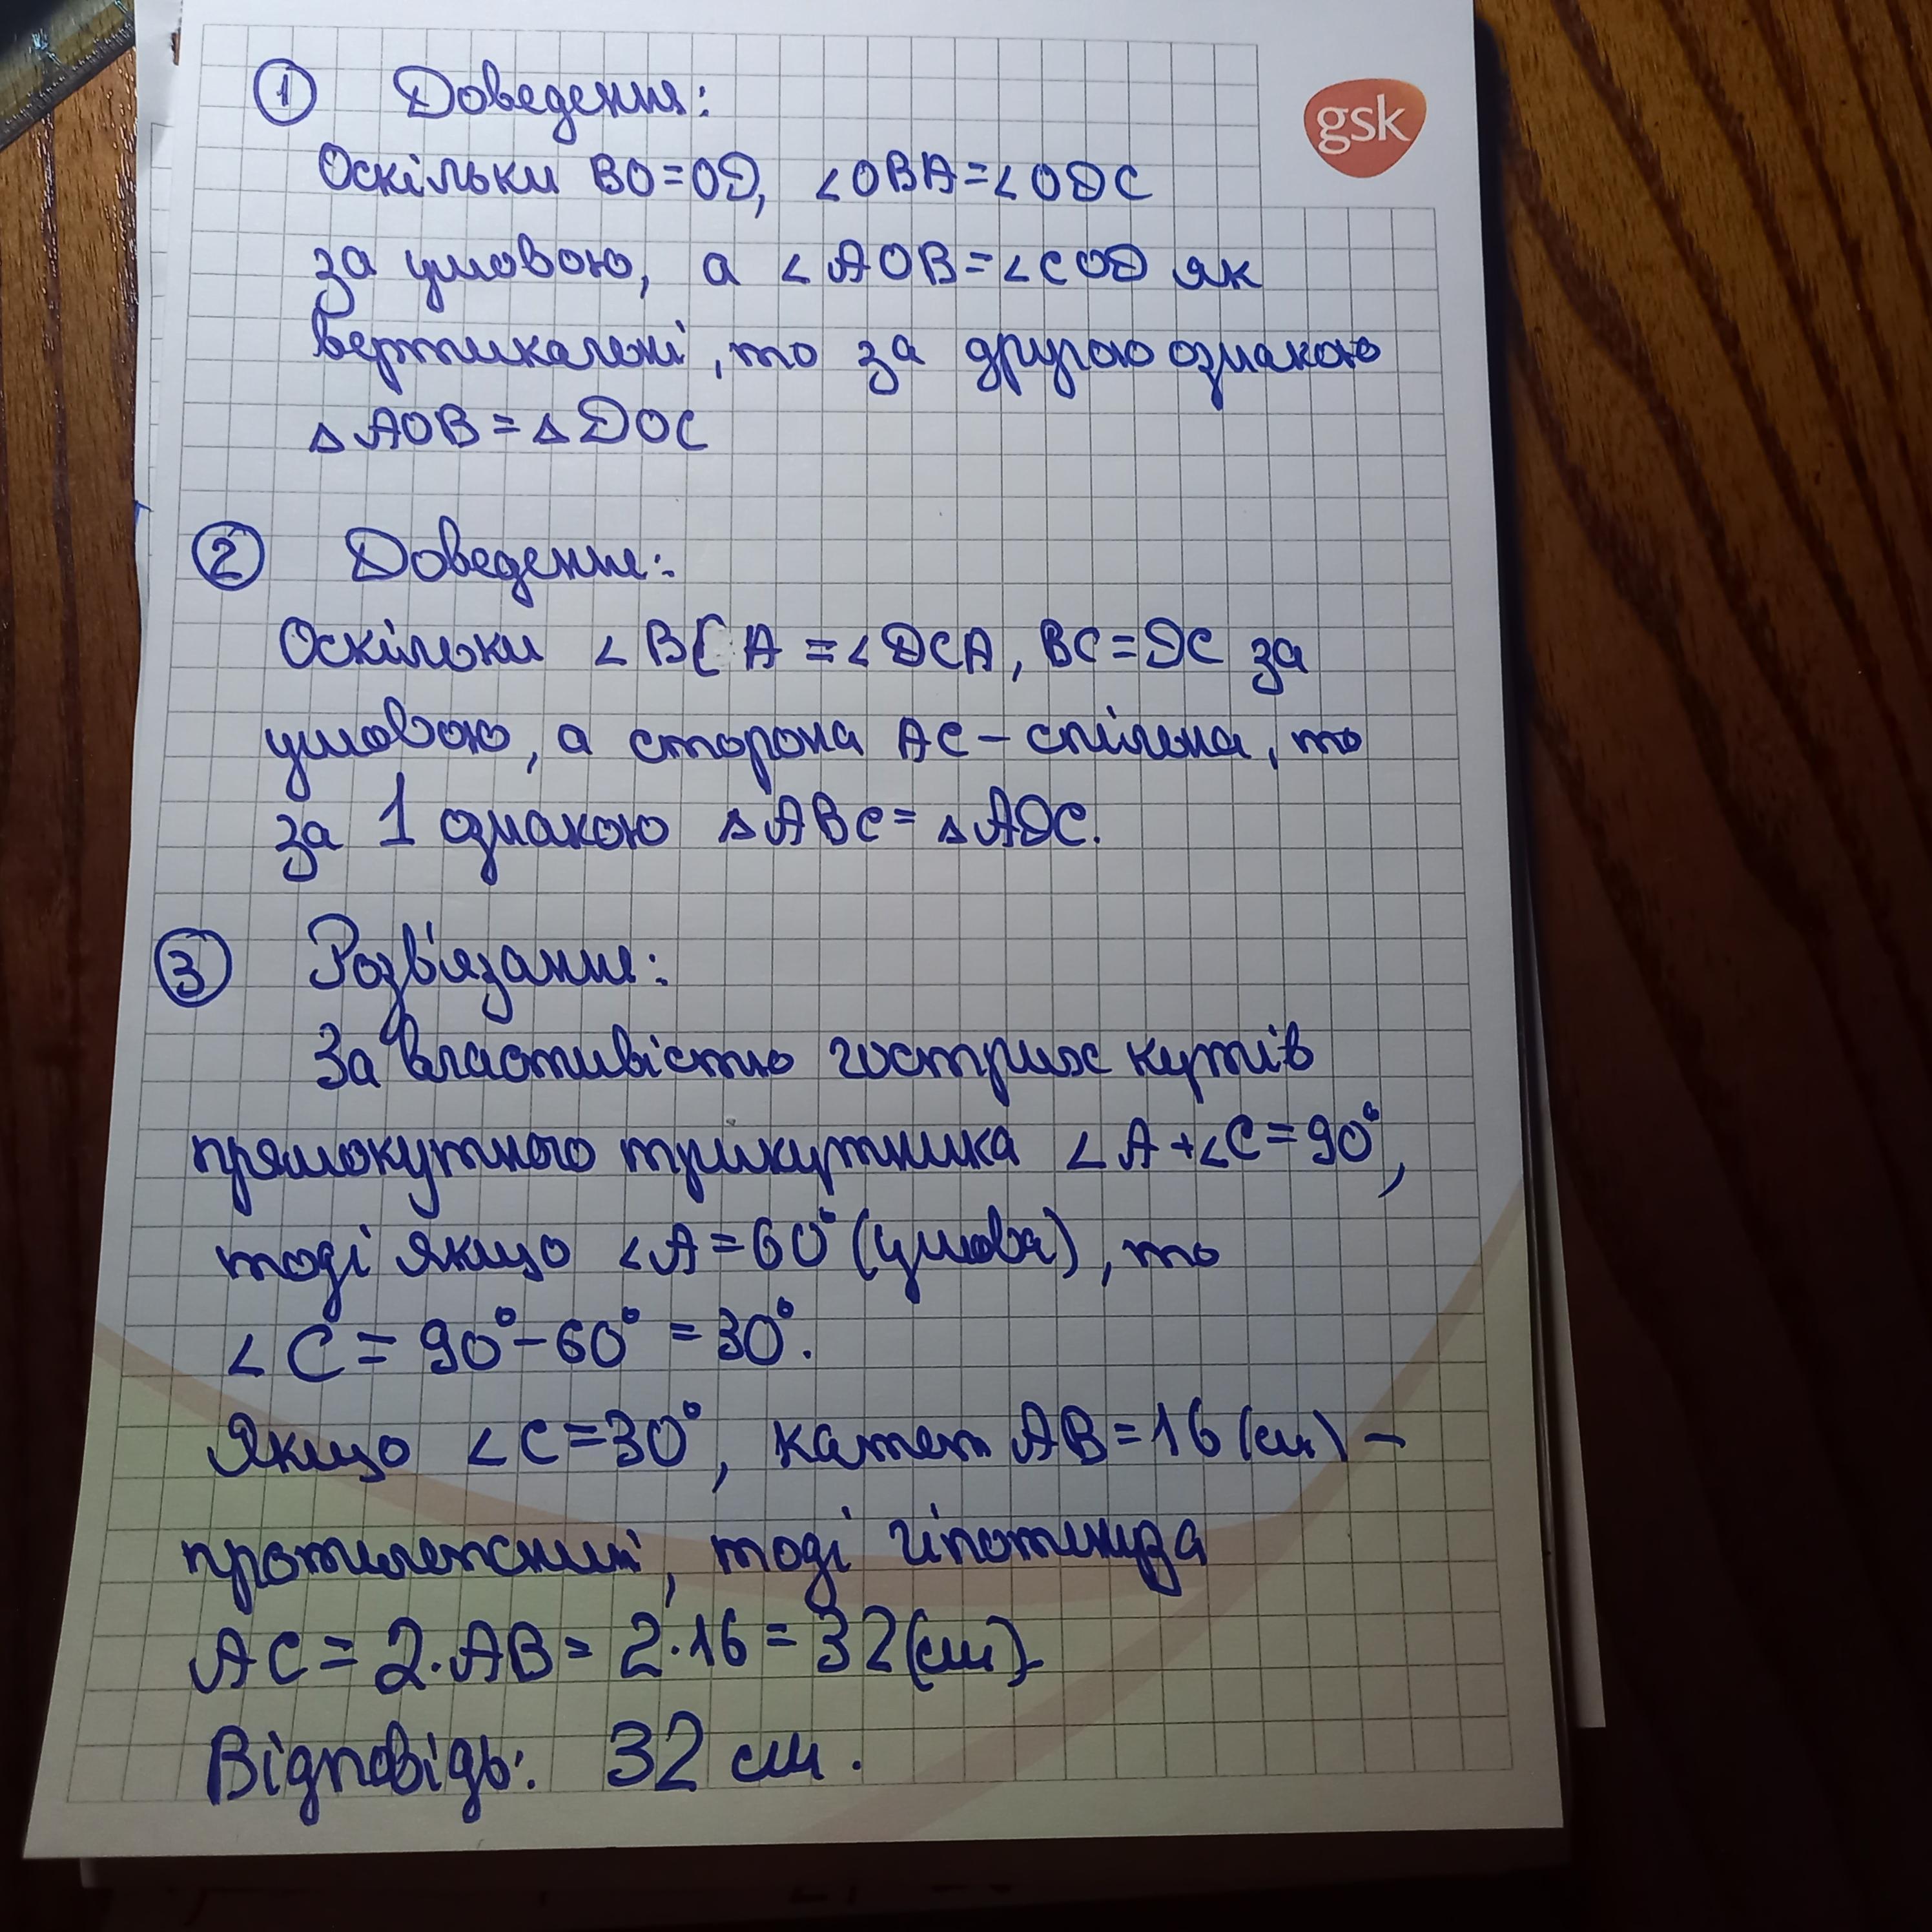 ① Доведення:
gsk
Оскільки BO=OD, ∠OBA=∠ODC
за умовою, а ∠AOB=∠COD як
вертикальні, то за другою ознакою
△AOB=△DOC
② Доведення:
Оскільки ∠BCA=∠DCA, BC=DC за
умовою, а сторона AC–спільна, то
за 1 ознакою △ABC=△ADC.
③ Розв'язання:
За властивістю гострих кутів
прямокутного трикутника ∠A+∠C=90°,
тоді якщо ∠A=60° (умова), то
∠C=90°–60°=30°.
Якщо ∠C=30°, катет AB=16 (см) –
протилежний, тоді гіпотинуза
AC=2·AB=2·16=32(см).
Відповідь: 32 см.